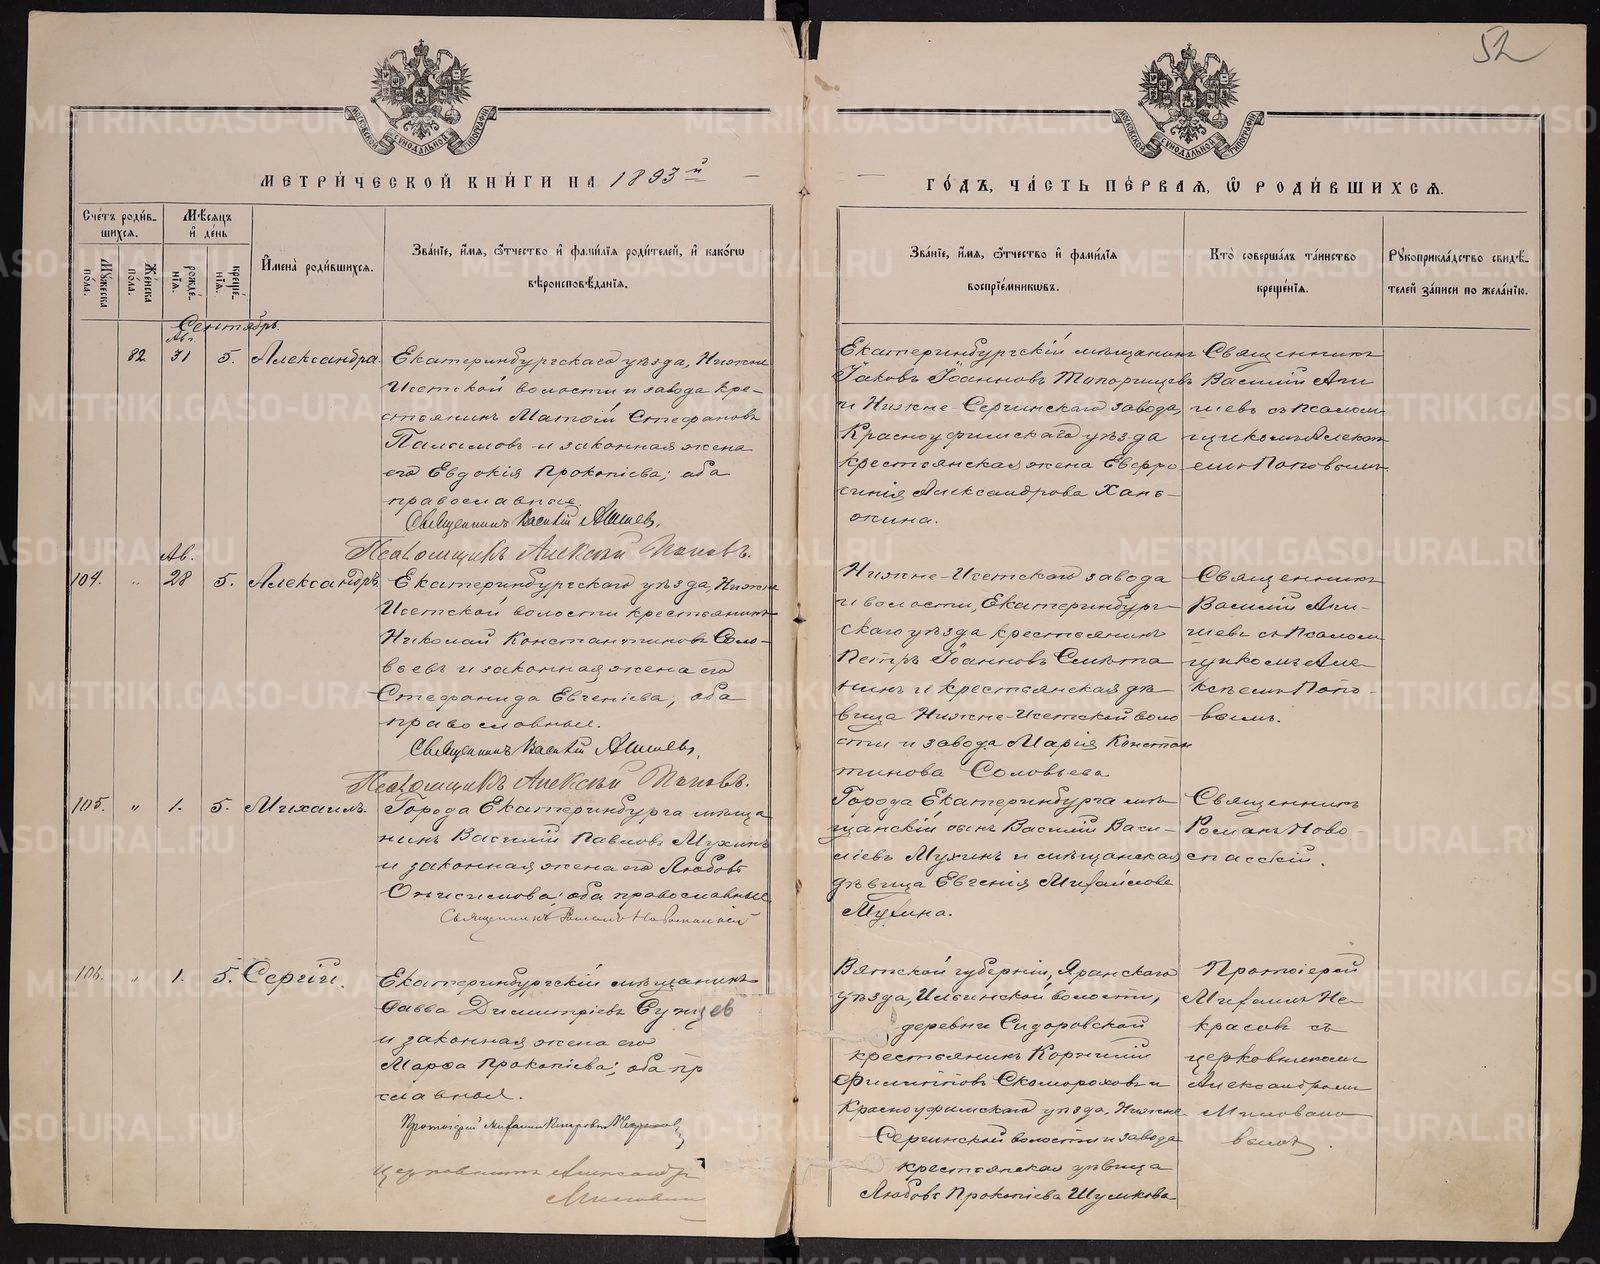 52
МЕТРИ́ЧЕСКОЙ КНИ́ГИ НА 1893й
ГО́ДЪ, ЧА́СТЬ ПЕ́РВАЯ, Ѿ РОДИ́ВШИХСѦ.
Сче́тъ роди́в-
шихсѧ.
Мꙋ́жеска по́ла.
Же́нска по́ла.
Мѣ́сѧцъ
и҆ де́нь
рожде́-
нїѧ.
креще́-
нїѧ.
И҆мена̀ роди́вшихсѧ.
Зва́нїе, и҆́мѧ, ѻ҆́тчество и҆ фами́лїѧ роди́телей, и҆ како́гѡ
вѣроисповѣ́данїѧ.
Зва́нїе, и҆́мѧ, ѻ҆́тчество и҆ фами́лїѧ
воспрїе́мникѡвъ.
Кто̀ соверша́лъ та́инство
креще́нїѧ.
Рꙋкоприкла́дство свидѣ́-
телей за́писи по жела́нїю.
Сентябрь.
Ав.
82 31 5. Александра
Екатеринбургскаго уѣзда, Нижне
Исетской волости и завода кре-
стьянинъ Матѳій Стефановъ
и законная жена
его Евдокія Прокопіева; оба
православные
Священникъ Василій
Псаломщикъ Алексѣй Поповъ.
Екатеринбургскій мѣщанинъ
Іаковъ Іоанновъ Топорищевъ
и Нижне-Сергинскаго завода,
Красноуфимскаго уѣзда
крестьянская жена Евфро
синія Александрова Хань-
жина.
Священникъ
Василій Аги
шевъ съ псалом
щикомъ Алекс
емъ Поповымъ
Ав.
104. " 28 5. Александръ
Екатеринбургскаго уѣзда, Нижне
Исетской волости крестьянинъ
Николай Константиновъ Соло-
вьевъ и законная жена его
Стефанида Евгеніева; оба
православные.
Священникъ Василій
Псаломщикъ Алексѣй Поповъ.
Нижне-Исетскаго завода
и волости, Екатеринбург-
скаго уѣзда крестьянинъ
Петръ Іоанновъ Смѣта
нинъ и крестьянская дѣ
вица Нижне-Исетской воло
сти и завода Марія Констан
тинова Соловьева
Священникъ
Василій Аги-
шевъ съ псалом
щикомъ Але-
ксѣемъ Попо-
вымъ.
105. " 1. 5. Михаилъ.
Города Екатеринбурга мѣща
нинъ Василій Павловъ Мухинъ
и законная жена его Любовь
Онисимова; оба православные
Священникъ Романъ Новоспасскій
Города Екатеринбурга мѣ-
щанскій сынъ Василій Васи-
ліевъ Мухинъ и мѣщанская
дѣвица Евгенія Михайлова
Мухина.
Священникъ
Романъ Ново
спасскій.
106. " 1. 5. Сергій.
Екатеринбургскій мѣщанинъ
Савва Димитріевъ
и законная жена его
Марѳа Прокопіева; оба пр
славные.
Протоіерей Михаилъ Некрасовъ
Церковникъ Александръ
Вятской губерніи, Яранскаго
уѣзда, Ильинской волости,
деревни Сидоровской
крестьянинъ Корнилій
Филипповъ Скомороховъ и
Красноуфимскаго уѣзда, Нижне
Сергинской волости и завода
крестьянская дѣвица
Любовь Прокопіева Шумкова
Протоіерей
Михаилъ Не-
красовъ съ
церковникомъ
Александромъ
Миловано
вымъ.